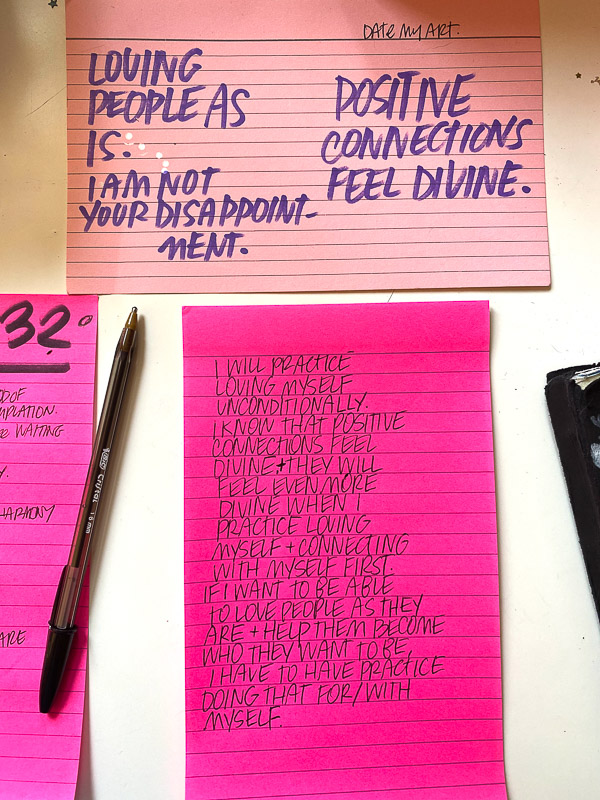 DATE MY ART.
LOVING
PEOPLE AS
IS.
I AM NOT
YOUR DISAPPOINT-
MENT.
POSITIVE
CONNECTIONS
FEEL DIVINE.
32
OD OF
MPLATION.
WAITING
Y.
HARMONY
ARE
BIC CRISTAL 1.6 mm
I WILL PRACTICE
LOVING MYSELF
UNCONDITIONALLY.
I KNOW THAT POSITIVE
CONNECTIONS FEEL
DIVINE + THEY WILL
FEEL EVEN MORE
DIVINE WHEN I
PRACTICE LOVING
MYSELF + CONNECTING
WITH MYSELF FIRST.
IF I WANT TO BE ABLE
TO LOVE PEOPLE AS THEY
ARE + HELP THEM BECOME
WHO THEY WANT TO BE,
I HAVE TO HAVE PRACTICE
DOING THAT FOR/WITH
MYSELF.